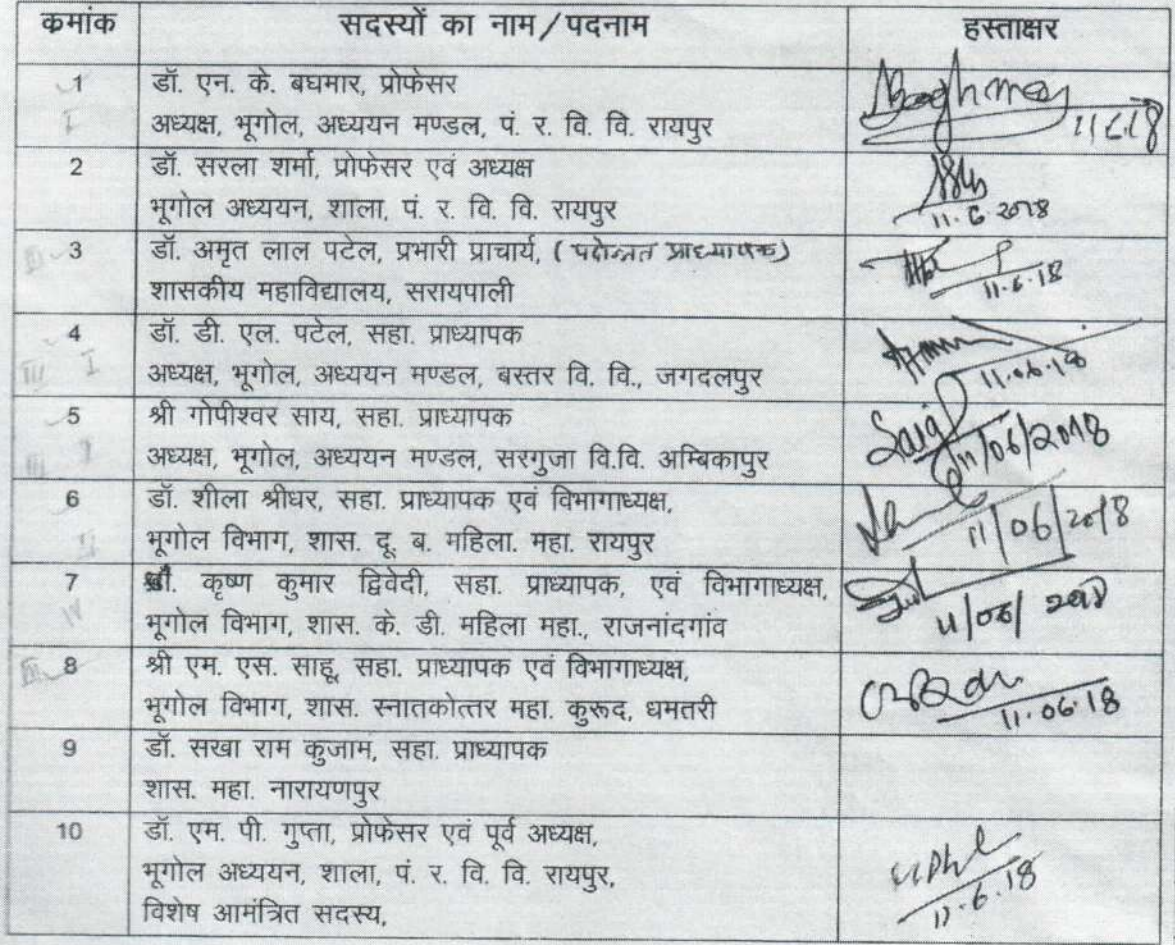 क्रमांक सदस्यों का नाम/पदनाम हस्ताक्षर
1 डॉ. एन. के. बघमार, प्रोफेसर
I अध्यक्ष, भूगोल, अध्ययन मण्डल, पं. र. वि. वि. रायपुर 11.6.18
2 डॉ. सरला शर्मा, प्रोफेसर एवं अध्यक्ष
भूगोल अध्ययन, शाला, पं. र. वि. वि. रायपुर 11.6.2018
3 डॉ. अमृत लाल पटेल, प्रभारी प्राचार्य, (पदोन्नत प्राध्यापक)
शासकीय महाविद्यालय, सरायपाली 11.6.18
4 डॉ. डी. एल. पटेल, सहा. प्राध्यापक
III I अध्यक्ष, भूगोल, अध्ययन मण्डल, बस्तर वि. वि., जगदलपुर 11.06.18
5 श्री गोपीश्वर साय, सहा. प्राध्यापक
III I अध्यक्ष, भूगोल, अध्ययन मण्डल, सरगुजा वि.वि. अम्बिकापुर 11/06/2018
6 डॉ. शीला श्रीधर, सहा. प्राध्यापक एवं विभागाध्यक्ष,
II भूगोल विभाग, शास. दू. ब. महिला. महा. रायपुर 11/06/2018
7 कृष्ण कुमार द्विवेदी, सहा. प्राध्यापक, एवं विभागाध्यक्ष,
IV भूगोल विभाग, शास. के. डी. महिला महा., राजनांदगांव 11/06/2018
8 श्री एम. एस. साहू, सहा. प्राध्यापक एवं विभागाध्यक्ष,
भूगोल विभाग, शास. स्नातकोत्तर महा. कुरूद, धमतरी 11.06.18
9 डॉ. सखा राम कुजाम, सहा. प्राध्यापक
शास. महा. नारायणपुर
10 डॉ. एम. पी. गुप्ता, प्रोफेसर एवं पूर्व अध्यक्ष,
भूगोल अध्ययन, शाला, पं. र. वि. वि. रायपुर,
विशेष आमंत्रित सदस्य, 11.6.18